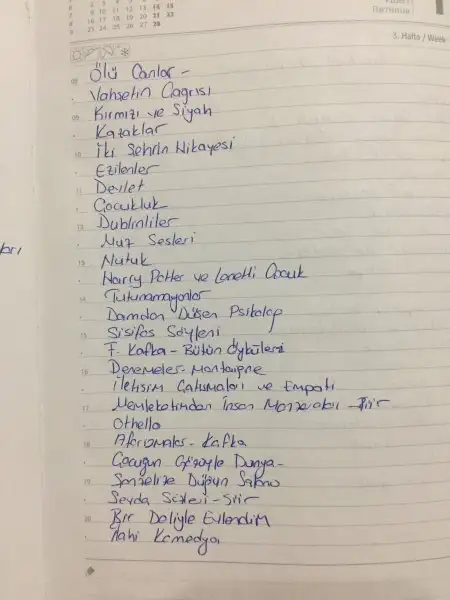 9 10 11 12 13 14 15
16 17 18 19 20 21 22
23 24 25 26 27 28
3. Hafta / Week
08 Ölü Canlar -
Vahşetin Çağrısı
09 Kırmızı ve Siyah
Kazaklar
10 İki Şehrin Hikayesi
Ezilenler
11 Devlet
Çocukluk
12 Dublinliler
Muz Sesleri
13 Nutuk
Harry Potter ve Lanetli Çocuk
14 Tutunamayanlar
Damdan Düşen Psikolog
15 Sisifos Söyleni
F. Kafka - Bütün Öyküleri
16 Denemeler - Montaigne
İletişim Çatışmaları ve Empati
17 Memleketimden İnsan Manzaraları - Şiir
Othello
18 Aforizmalar - Kafka
Çocuğun Gözüyle Dünya -
19 Şanzelize Düğün Salonu
Sevda Sözleri - Şiir
20 Bir Deliyle Evlendim
İlahi Komedya